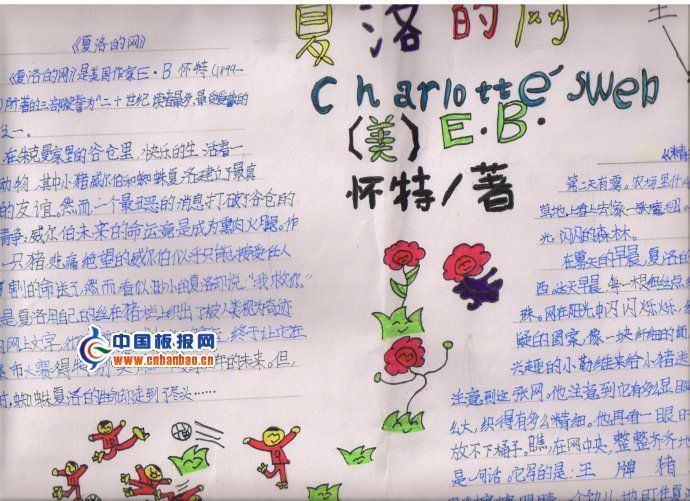 《夏洛的网》
《夏洛的网》是美国作家E·B怀特(1899—
"二十世纪读者最多、最受爱戴的
之一。
在朱克曼家里的谷仓里,快乐的生活着一
动物,其中小猪威尔伯和蜘蛛夏洛建立了最真
的友谊。然而一个最丑恶的消息打破了谷仓的
:威尔伯未来的命运竟是成为熏肉火腿。作
一只猪,悲痛绝望的威尔伯似乎只能接受任人
宰割的命运了,然而看似渺小的夏洛却说:"我救你。"
是夏洛用自己的丝在猪栏上织出了被人类视为奇迹
网上文字,
终于让它在
的未来。但,
时,蜘蛛夏洛的生命却走到了尽头……
中国板报网
www.cnbanbao.cn
夏洛的网
Charlotte'sWeb
(美)E.B.
怀特/著
王
《精
第二天有雾。农场里什
草地上看上去像一张魔毯。
光闪闪的森林。
在雾天的早晨,夏洛的
西。这天早晨,每一根细丝点
珠。网在阳光中闪闪烁烁,
疑的图案,像一块纤细的面
兴趣的小勒维来给小猪送
注意到这张网。他注意到它有多么显眼
么大,织得有多么精细。他再看一眼时
放不下桶子。瞧,在网中央,整整齐齐地
是一句话。它写的是:王牌猪